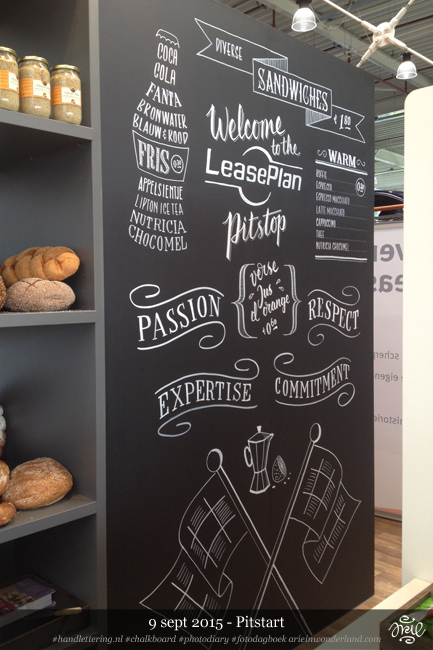 DIVERSE
SANDWICHES
COCA
COLA
FANTA
BRONWATER
BLAUW & ROOD
FRIS
APPELSIENTJE
LIPTON ICE TEA
NUTRICIA
CHOCOMEL
Welcome
to the
LeasePlan
Pitstop
WARM
KOFFIE
ESPRESSO
ESPRESSO MACCHIATO
LATTE MACCHIATO
CAPPUCCINO
THEE
NUTRICIA CHOCOMEL
verse
Jus
d'orange
PASSION
RESPECT
EXPERTISE
COMMITMENT
9 sept 2015 - Pitstart
#handlettering.nl #chalkboard #photodiary #fotodagboek arieinwonderland.com